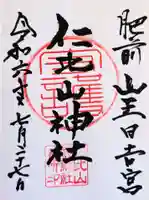 肥前 山王日吉宮
仁比山神社
令和六年七月二十七日